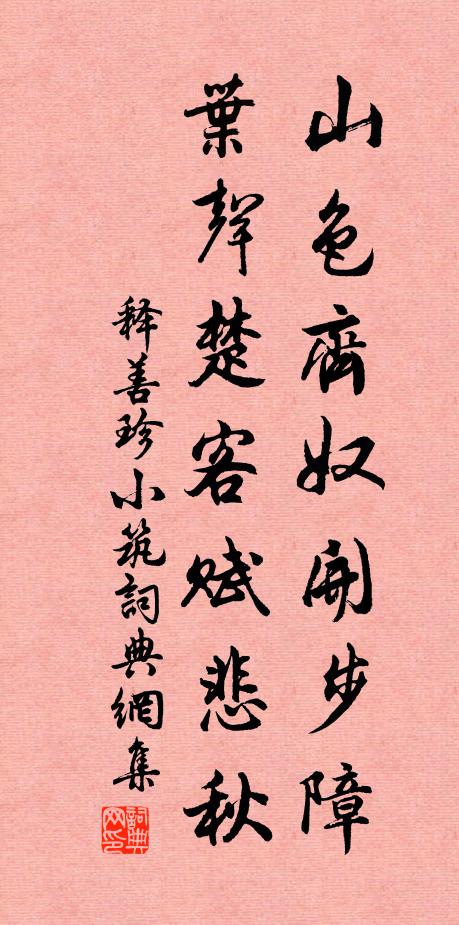 山色齊奴開步障
葉聲楚客賦悲秋
释善珍小筑詞典網集
詞典网印